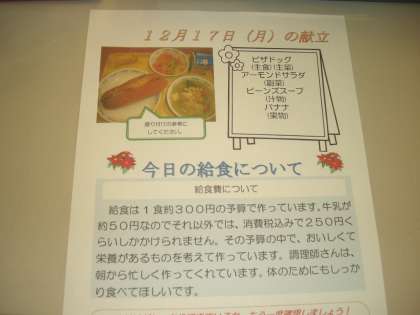 12月17日(月)の献立
ピザドッグ
(主食)(主菜)
アーモンドサラダ
(副菜)
ビーンズスープ
(汁物)
バナナ
(果物)
盛り付けの参考に
してください。
今日の給食について
給食費について
給食は1食約300円の予算で作っています。牛乳が
約50円なのでそれ以外では、消費税込みで250円く
らいしかかけられません。その予算の中で、おいしくて
栄養があるものを考えて作っています。調理師さんは、
朝から忙しく作ってくれています。体のためにもしっか
り食べてほしいです。